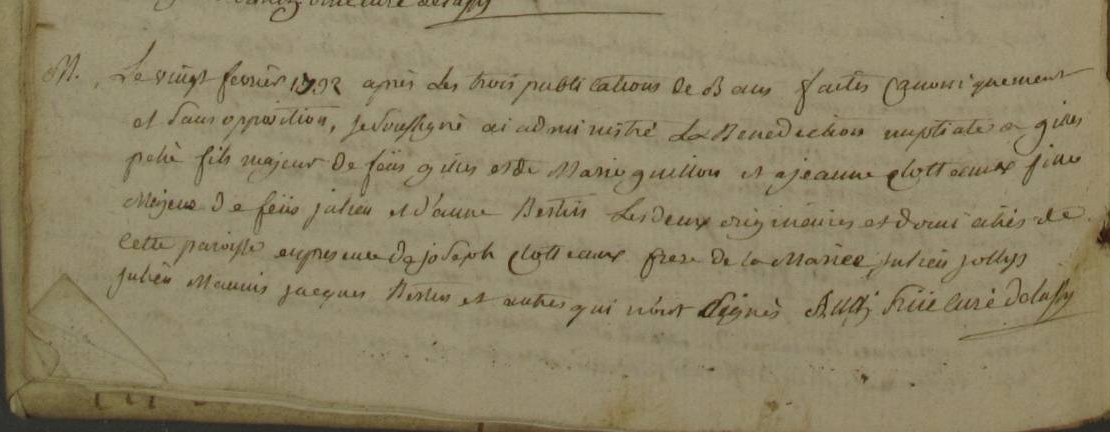 curé delassy
M. Le vingt fevrier 1792 apres les trois publications de Bans faites Canoniquement
et sans opposition, je soussigné ai administré La Benediction nuptiale a gilles
fils majeur de feüs gilles et de Marie guillou et a jeanne Clotteaux fille
Majeure de feüs julien et d'anne Bertin Les deux originaires et domiciliés de
Cette paroisse en presence de joseph Clotteaux frere de la Mariée, julien jollys
julien Maunis jacques Bertin et autres qui n'ont Signés curé delassy